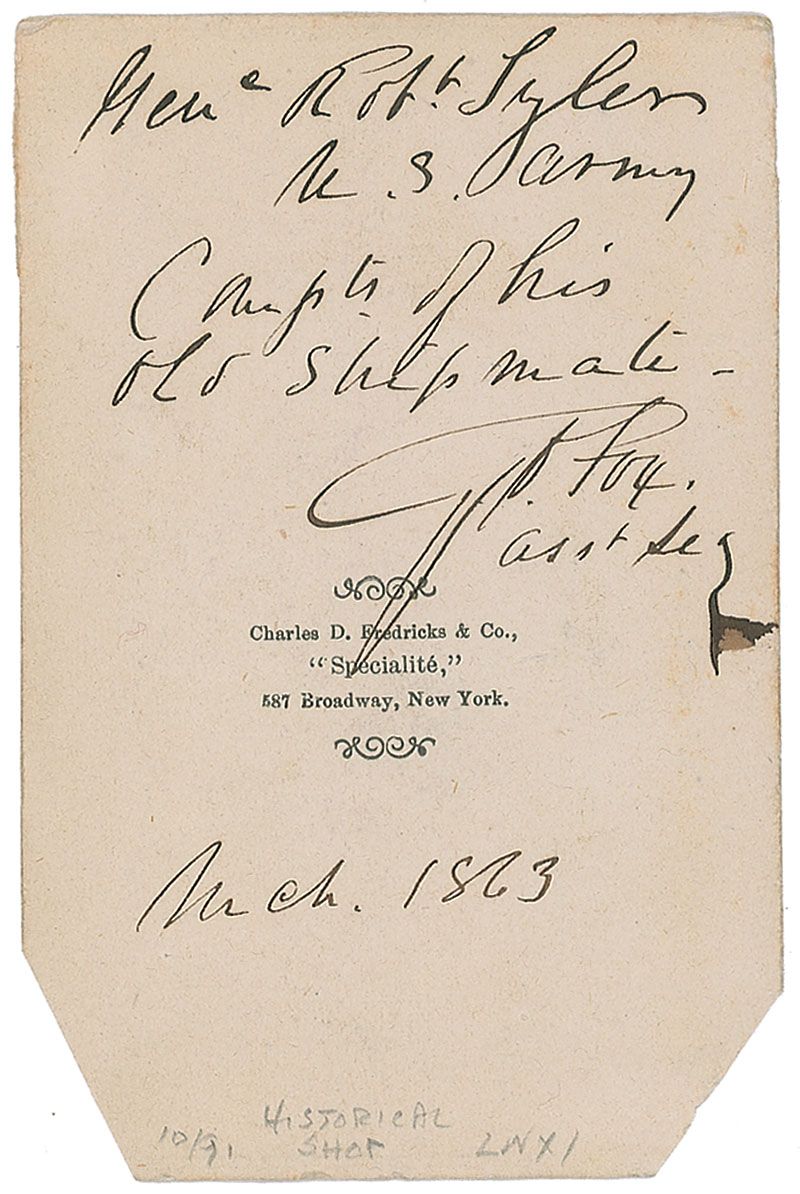 Genl Robt Tyler
U.S. Army
Compts of his
old shipmate -
G.V. Fox.
asst Secy
Charles D. Fredricks & Co.,
"Specialité,"
587 Broadway, New York.
Mch. 1863
HISTORICAL
10/91 SHOP LNX1